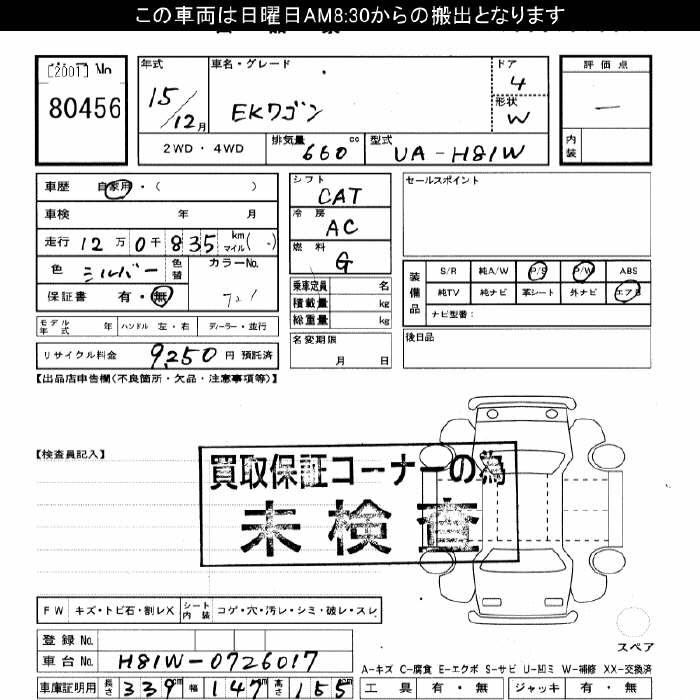 この車両は日曜日AM8:30からの搬出となります
[2001] No
80456
年式
15/12月
車名・グレード
EKワゴン
ドア
4
形状
W
評価点
—
内装
2WD・4WD
排気量
660 cc
型式
UA-H81W
車歴 自家用・( )
車検 年 月
走行 12万0千835 km マイル( )
色 シルバー 色替
カラーNo.
保証書 有・無
モデル年式 年 ハンドル 左・右 ディーラー・並行
リサイクル料金 9,250 円 預託済
シフト
CAT
冷房
AC
燃料
G
乗車定員 名
積載量 kg
総重量 kg
名変期限
月 日
セールスポイント
装備品
S/R 純A/W P/S P/W ABS
純TV 純ナビ 革シート 外ナビ エアB
ナビ型番:
後日品
【出品店申告欄(不良箇所・欠品・注意事項等)】
【検査員記入】
買取保証コーナーの為
未検査
FW キズ・トビ石・割レX シート内装 コゲ・穴・汚レ・シミ・破レ・スレ
登録No.
車台No. H81W-0726017
車庫証明用 長さ 339cm 幅 147cm 高さ 155cm
スペア
A-キズ C-腐食 E-エクボ S-サビ U-凹ミ W-補修 XX-交換済
工具 有・無 ジャッキ 有・無